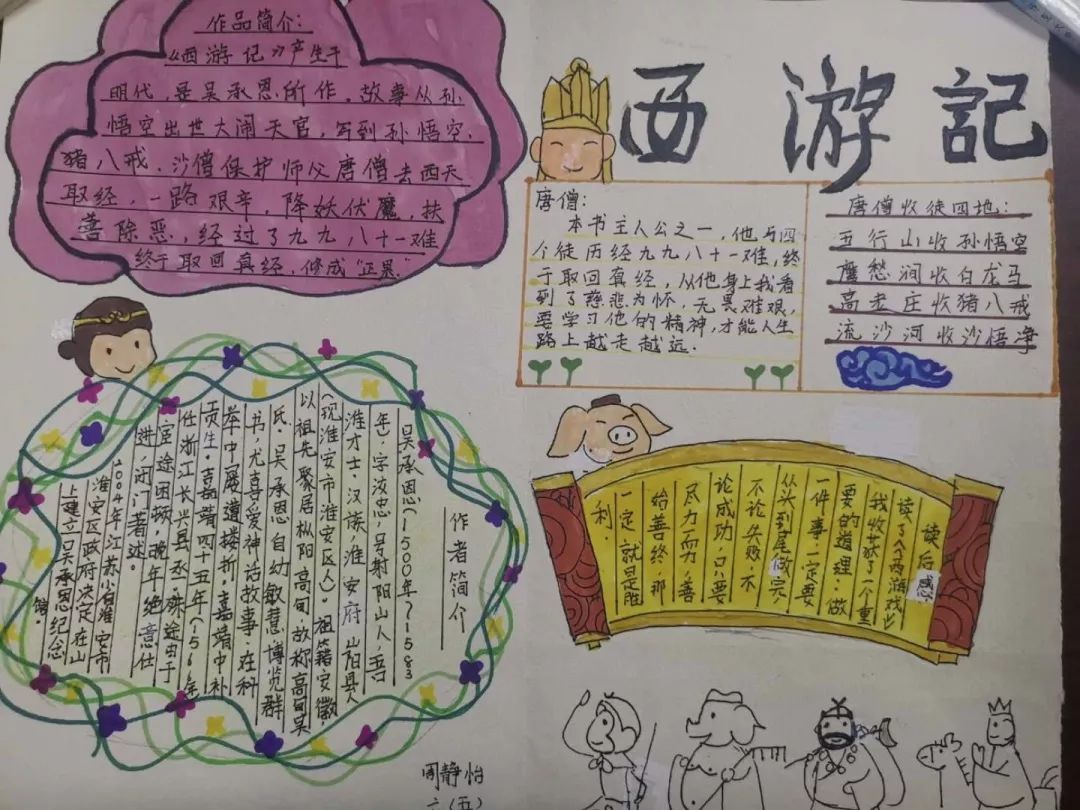 作品简介：
《西游记》产生于
明代，是吴承恩所作。故事从孙
悟空出世大闹天宫，写到孙悟空、
猪八戒、沙僧保护师父唐僧去西天
取经，一路艰辛，降妖伏魔，扶
善除恶，经过了九九八十一难
终于取回真经，修成“正果”
西游記
唐僧：
本书主人公之一，他与四
个徒历经九九八十一难，终
于取回真经，从他身上我看
到了慈悲为怀，无畏难艰，
要学习他的精神，才能人生
路上越走越远．
唐僧收徒四地：
五行山收孙悟空
鹰愁涧收白龙马
高老庄收猪八戒
流沙河收沙悟净
作者简介
吴承恩（1500年？-1583
年），字汝忠，号射阳山人，
淮才士，汉族，淮安府山阳县人
（现淮安市淮安区人）。祖籍安徽，
以祖先聚居枞阳高甸，故称高甸吴
氏。吴承恩自幼敏慧，博览群
书，尤喜爱神话故事．在科
举中屡遭挫折，嘉靖中补
贡生．嘉靖四十五年（156年
仕浙江长兴县丞．殊途由于
宦途困顿，晚年绝意仕
进，闭门著述．
2004年，江苏小省淮安市
淮安区政府决定在山
上建立吴承恩纪念
馆．
读后感
读了《西游戏》
我收获了一个重
要的道理：做
一件事，一定要
从头到尾做完，
不论失败，不
论成功，只要
尽力而力，善
始善终，那
一定就是胜
利．
周静怡
六（五）